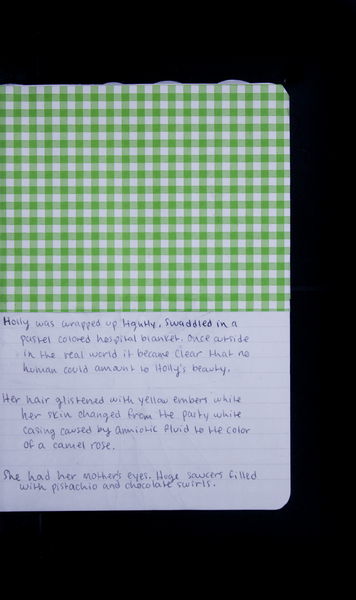 Holly was wrapped up tightly. Swaddled in a
pastel colored hospital blanket. Once outside
in the real world it became clear that no
human could amount to Holly's beauty.
Her hair glistened with yellow embers while
her skin changed from the pasty white
casing caused by amniotic fluid to the color
of a camel rose.
She had her mother's eyes. Huge saucers filled
with pistachio and chocolate swirls.